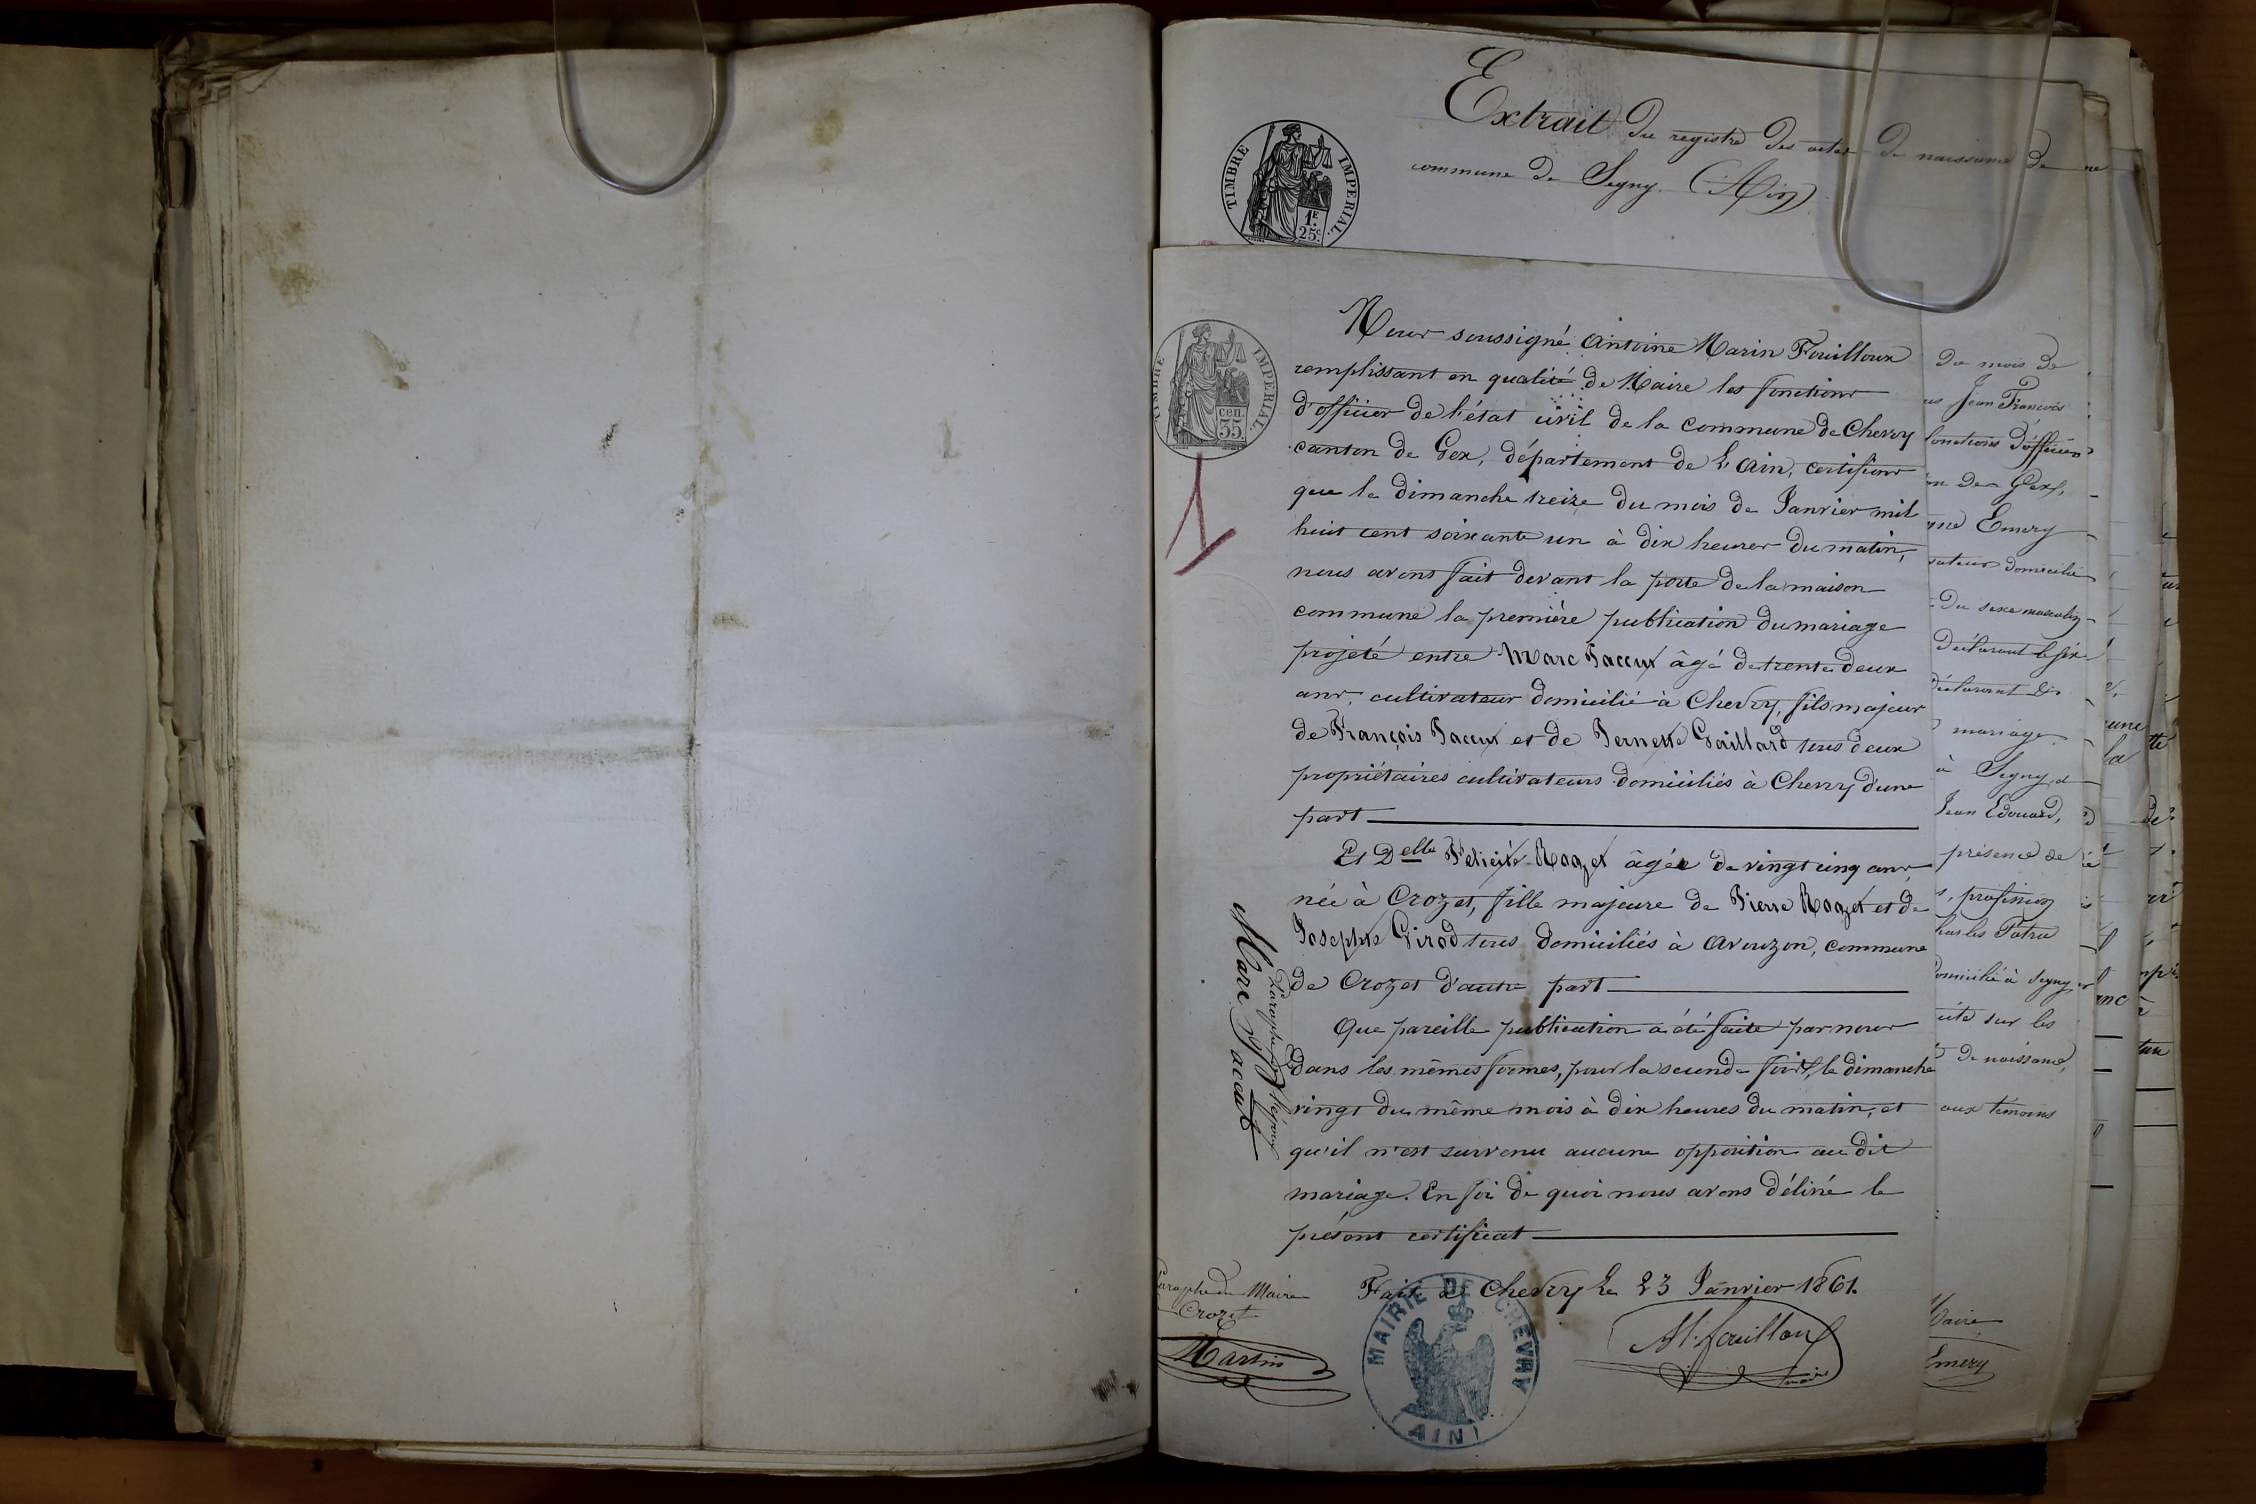 Extrait du registre des actes de naissance de
commune de Segny (Ain)
TIMBRE IMPERIAL
1F
25c
Nous soussigné Antoine Marin Fouilloux
remplissant en qualité de Maire les fonctions
d'officier de l'état civil de la commune de Chevry
canton de Gex, département de l'Ain, certifions
que le dimanche treize du mois de Janvier mil
huit cent soixante un à dix heures du matin,
nous avons fait devant la porte de la maison
commune la première publication du mariage
projeté entre Marc Jaccut âgé de trente deux
ans, cultivateur domicilié à Chevry, fils majeur
de François Jaccut et de Pernette Gaillard tous deux
propriétaires cultivateurs domiciliés à Chevry d'une
part
Et Delle Felicité Rozet âgée de vingt cinq ans
née à Crozet, fille majeure de Pierre Rozet et de
Josephte Girod tous domiciliés à Avouzon, commune
de Crozet d'autre part
Que pareille publication a été faite par nous
dans les mêmes formes, pour la seconde fois, le dimanche
vingt du même mois à dix heures du matin, et
qu'il n'est survenu aucune opposition au dit
mariage. En foi de quoi nous avons délivré le
présent certificat
Fait à Chevry le 23 Janvier 1861.
M. fouilloux
maire
MAIRIE DE CHEVRY
(AIN)
TIMBRE IMPERIAL
cen.
35.
1
Marc Jaccut
Paraphe du Maire
Crozet
Martin
du mois de
Jean François
fonctions d'officier
de Gex,
Emery
domicilié
du sexe masculin
Déclarant
déclarant
mariage
à Segny
Jean Edouard,
présence de
profession
domicilié à Segny
sur les
de naissance,
aux témoins
Maire
Emery
une
la